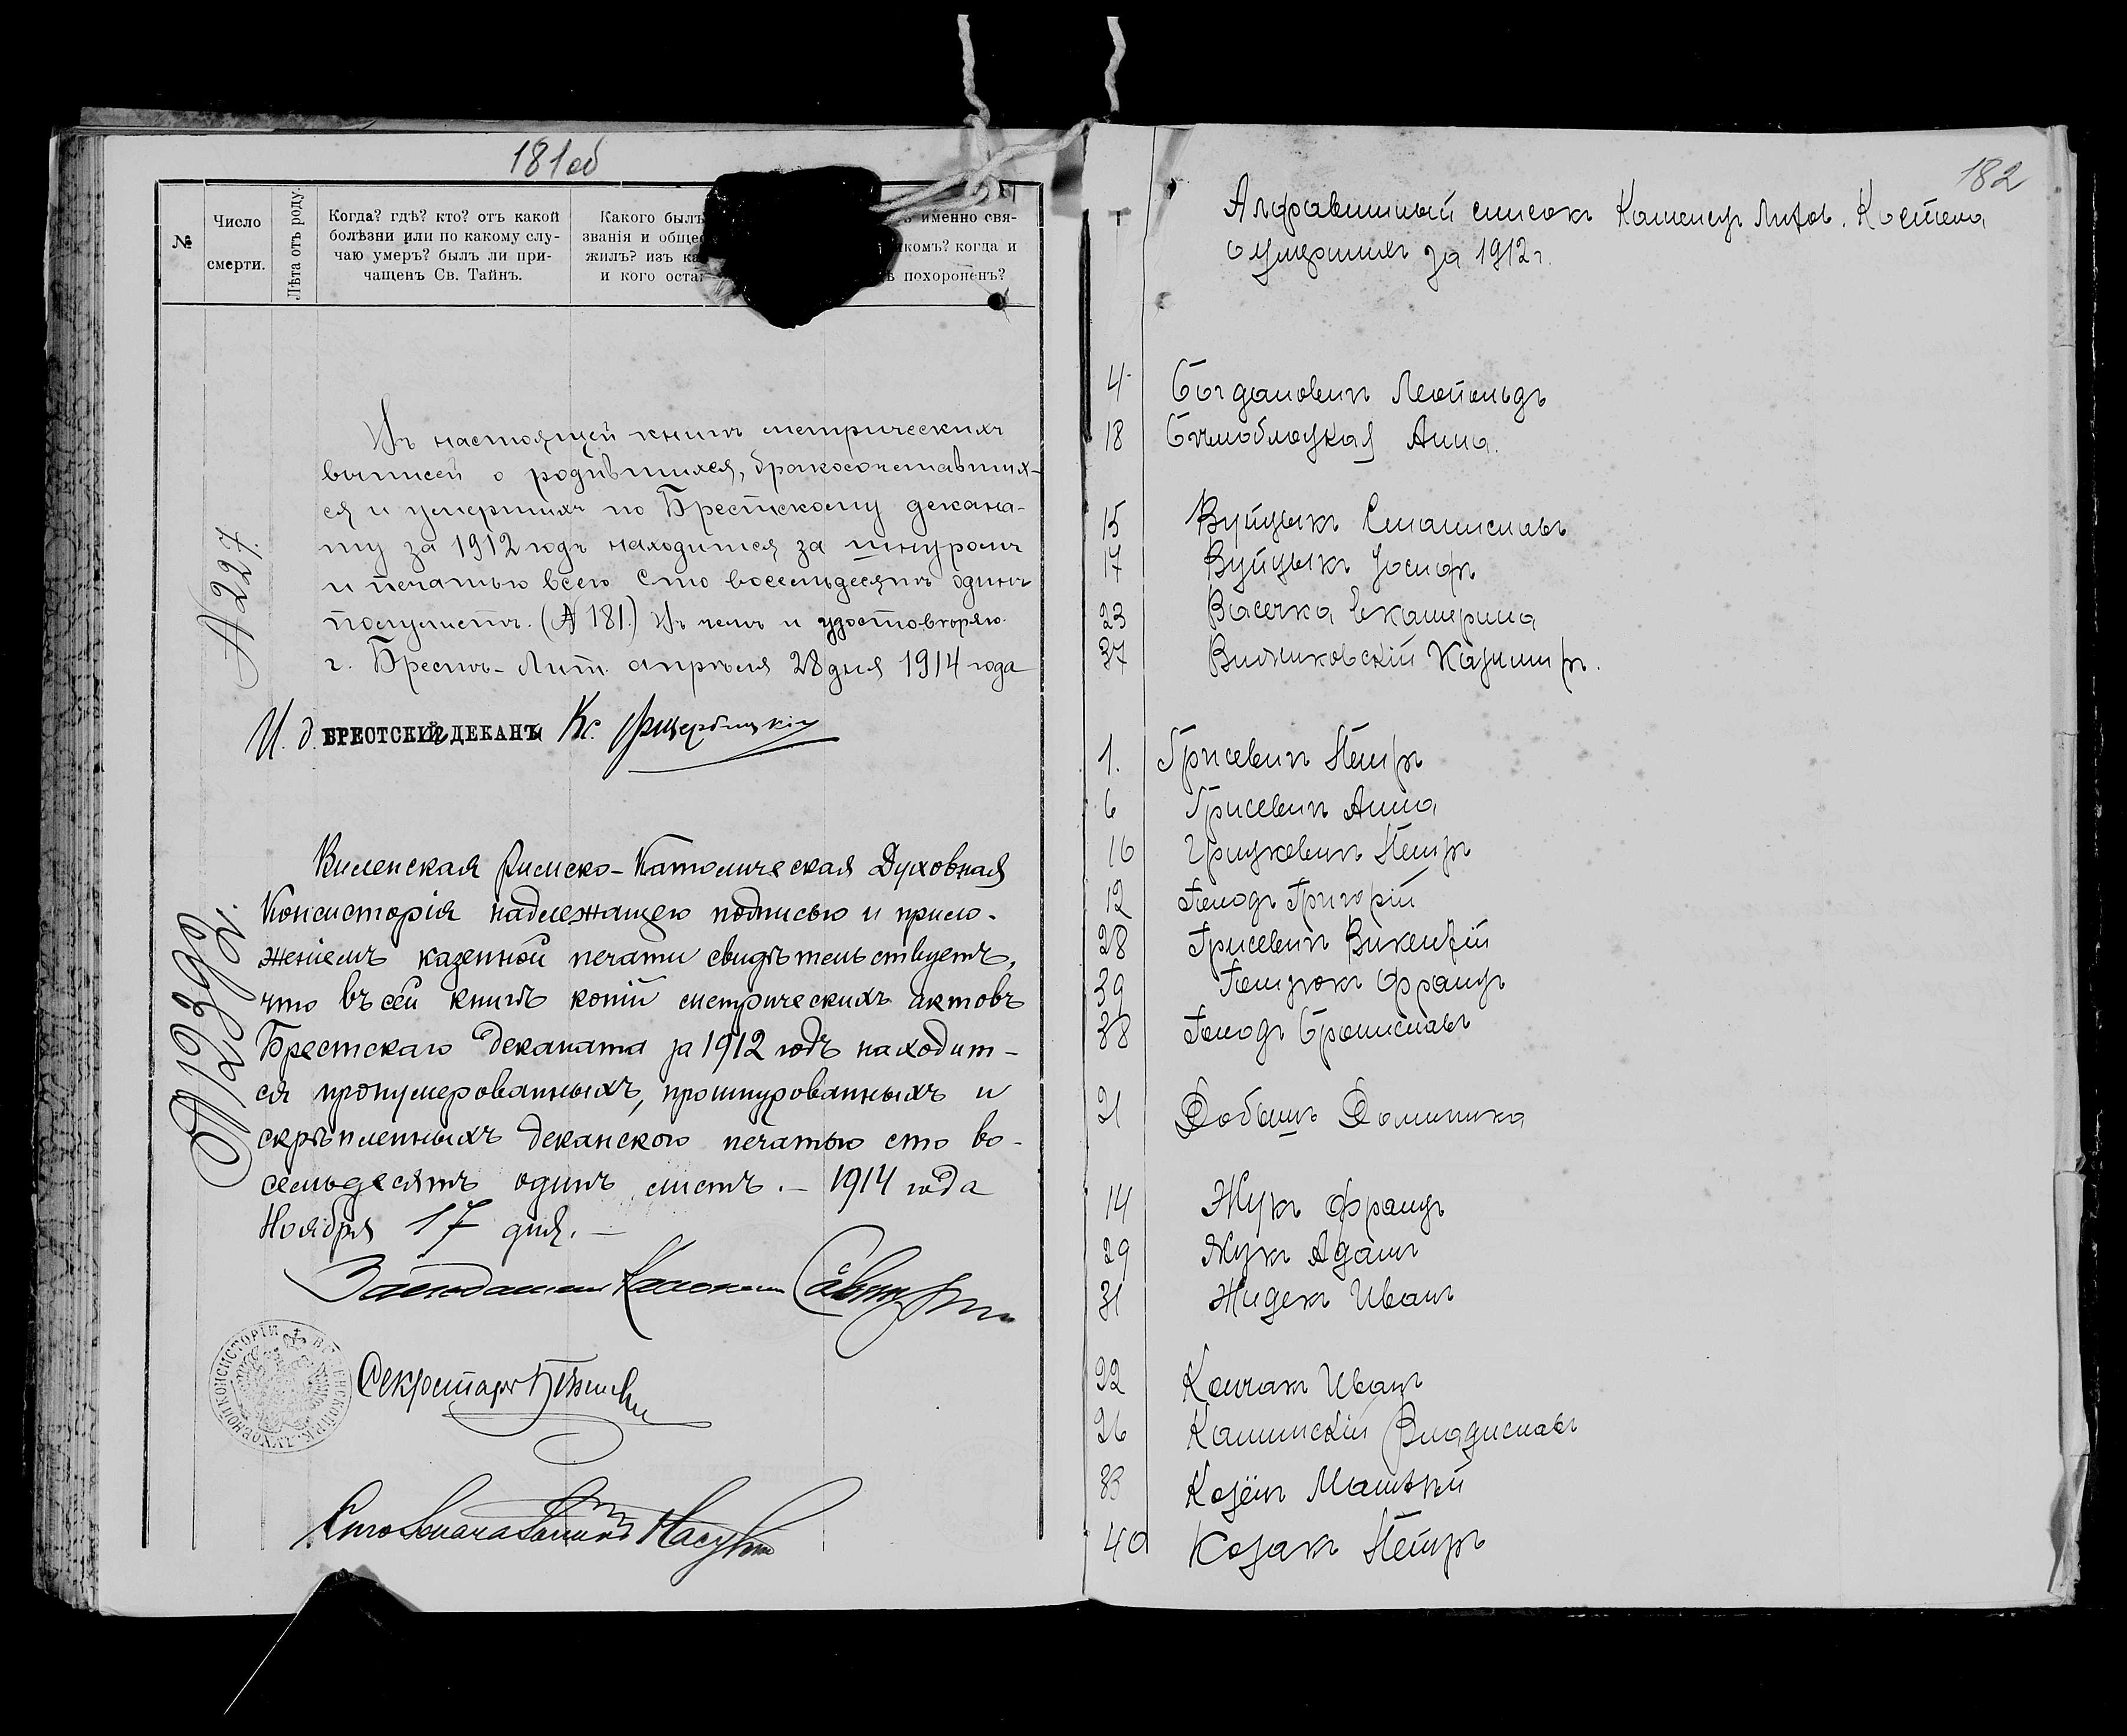 181об
№
Число
смерти.
Лѣта отъ роду.
Когда? гдѣ? кто? отъ какой
болѣзни или по какому слу-
чаю умеръ? былъ ли при-
чащенъ Св. Тайнъ.
Какого былъ
званія и общес
жилъ? изъ ка
и кого оста
именно свя-
комъ? когда и
похороненъ?
№ 227.
Въ настоящей книгѣ метрическихъ
выписей о родившихся, бракосочетавших-
ся и умершихъ по Брестскому декана-
ту за 1912 годъ находится за шнуромъ
и печатью всего сто восемьдесятъ одинъ
полулистъ. (№ 181.) Въ чемъ и удостовѣряю
г. Брестъ-Лит. апрѣля 28 дня 1914 года
И. д. БРЕСТСКІЙ ДЕКАНЪ Кс.
№ 12392.
Виленская Римско-Католическая Духовная
Консисторія надлежащею подписью и прило-
женіемъ казенной печати свидѣтельствуетъ,
что въ сей книгѣ копій метрическихъ актовъ
Брестскаго Деканата за 1912 годъ находит-
ся пронумерованныхъ, прошнурованныхъ и
скрѣпленныхъ деканскою печатью сто во-
семьдесятъ одинъ листъ. — 1914 года
Ноября 17 дня. —
Засѣдатель Каноникъ
Секретарь
Столоначальникъ
182
Алфавитный списокъ Каменецъ Литов. Костела
о умершихъ за 1912 г.
4 Богдановичъ Леопольдъ
18 Бѣлоблоцкая Анна.
15 Вуйцыкъ Станиславъ
17 Вуйцыкъ Іосифъ
23 Васечка Екатерина
37 Казимиръ.
1. Грисевичъ Петръ
6 Грисевичъ Анна
16 Грицкевичъ Петръ
12 Голодъ Григорій
28 Грисевичъ Викентій
39 Францъ
38 Голодъ Брониславъ
21 Добышъ Доминика
14 Жукъ Францъ
29 Жукъ Адамъ
31 Жидекъ Иванъ
22 Колчакъ Иванъ
26 Калинскій Владиславъ
33 Козёлъ Матвѣй
40 Козакъ Петръ